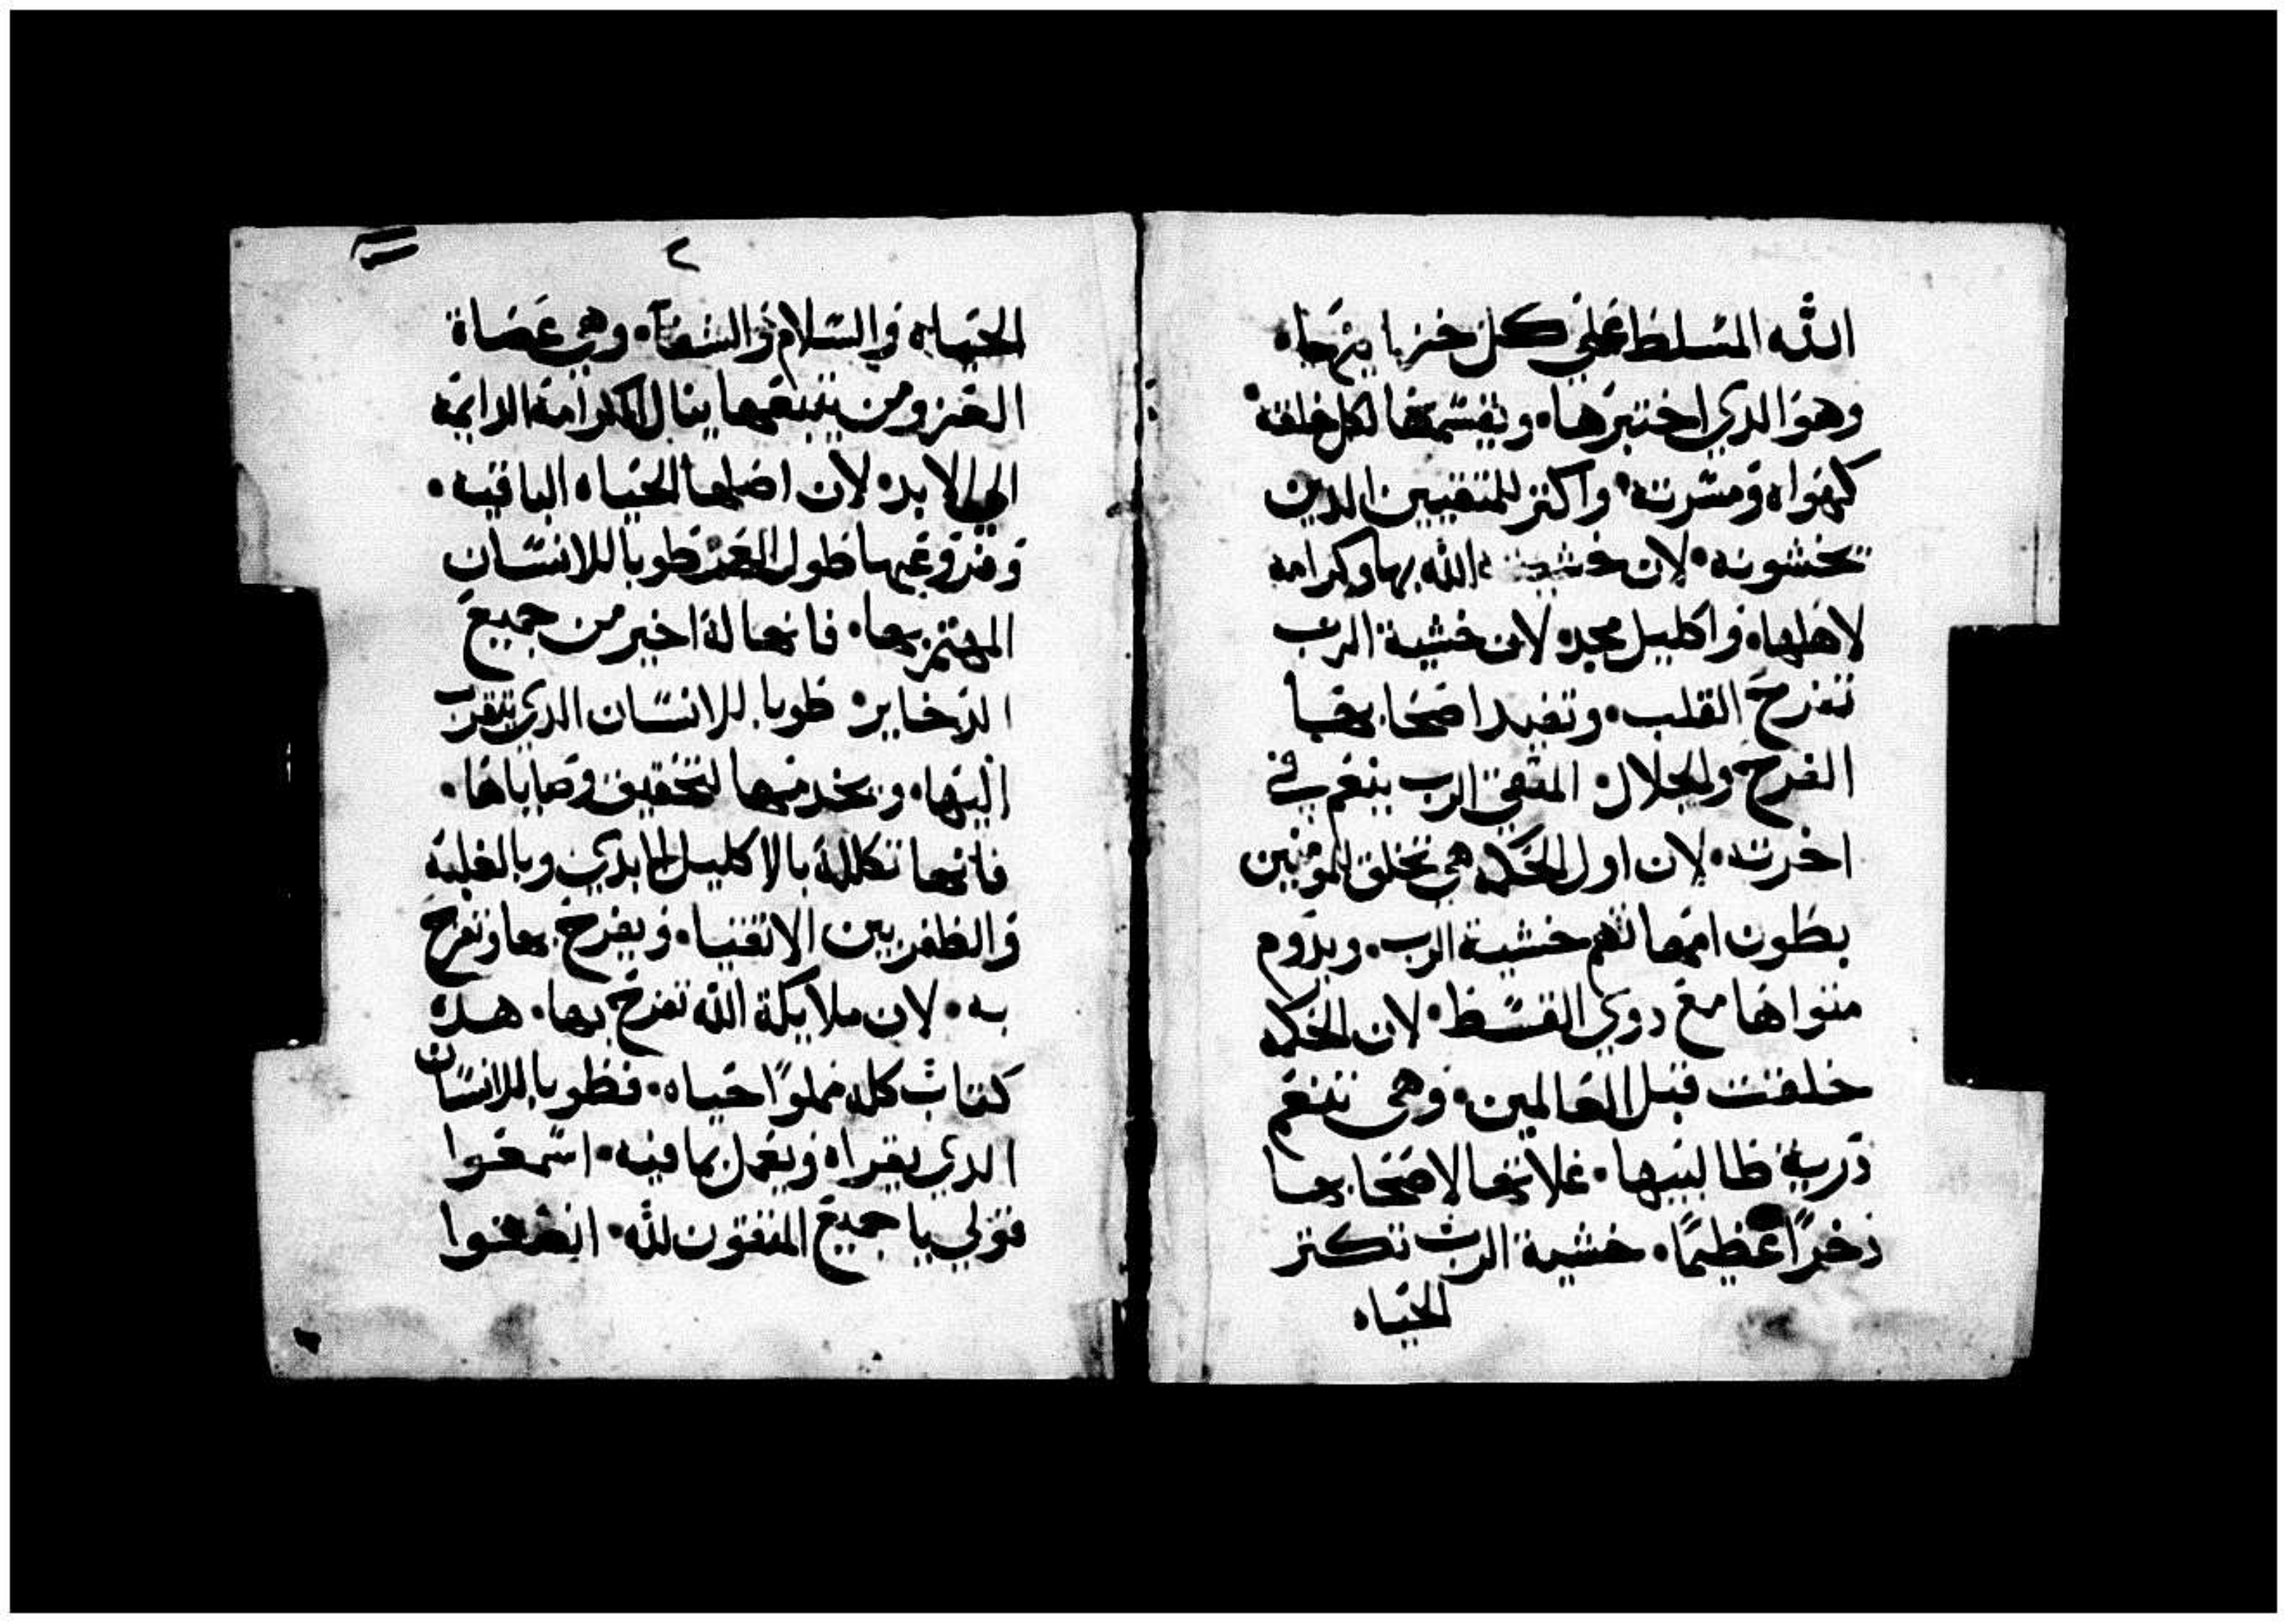 الله المسلط علي كل خزاينها.
وهو الدي اختبرها. ويقسمها لكل خلقه.
كهواه ومسرته. واكتر للمتقيين الدين
يخشونه. لان خشية الله بها وكرامه
لاهلها. واكليل مجد. لان خشية الرب
تفرح القلب. وتفيد اصحابها
الفرح والجلال. المتقي الرب ينعم في
اخرته. لان اول الحكمه هي تخلق للمومنين
بطون امهاتهم خشية الرب. ويدوم
متواها مع دوي القسط. لان الحكمه
خلقت قبل العالمين. وهي تنعم
درية طالبيها. غلاتها لاصحابها
دخرًا عظيمًا. خشية الرب تكتر
الحياه
٢
الحياه والسلام والشفا. وهي عصاة
العز ومن يتبعها ينال الكرامة الدايمه
الي الابد. لان اصلها الحياه الباقيه.
وفروعها طول العمر طوبا للانسان
المهتم بها. فانها لة اخير من جميع
الدخاير. طوبا للانسان الدي يتقرب
اليها. ويخدمها لتحقيق وصاياها.
فانها تكللة بالاكليل الابدي وبالغلبة
والظفر بين الاتقيا. ويفرح بها وتفرح
به. لان ملايكة الله تفرح بها. هده
كتاب كله مملوًا حياه. فطوبا للانسان
الدي يقراه ويعمل بما فيه. اسمعوا
قولي يا جميع المتقون لله. انصتوا